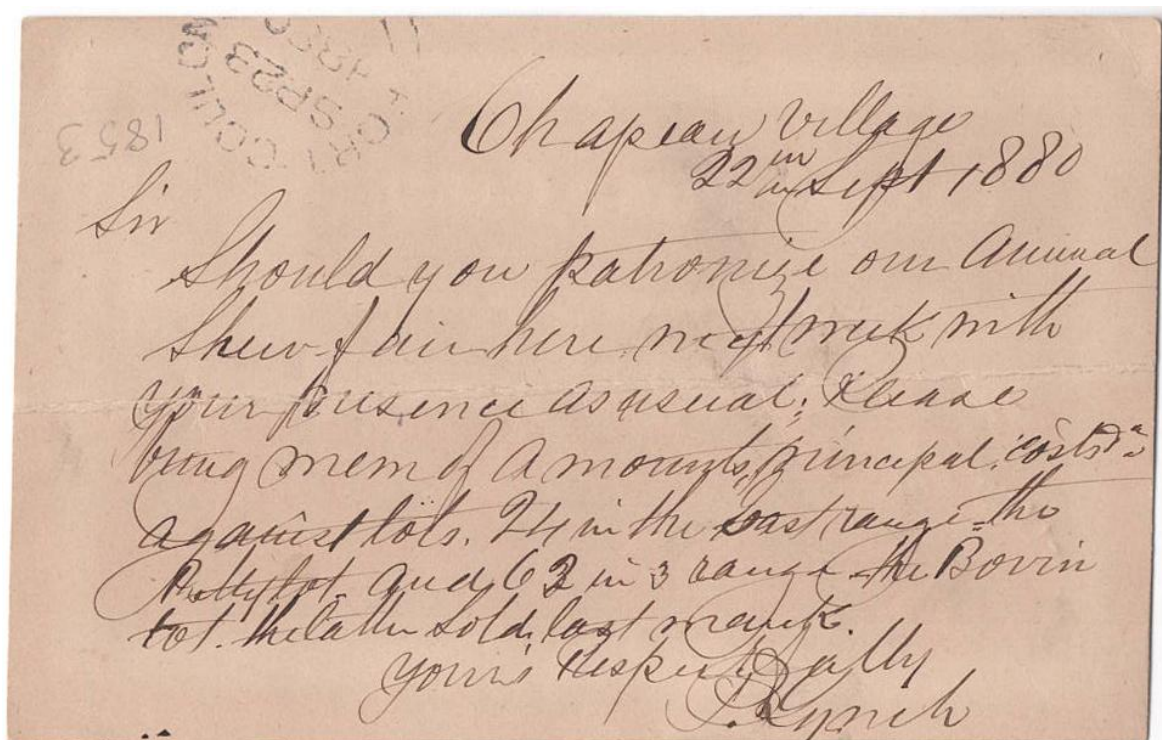 FORT COULONGE
SP 23
1853
Chapeau Village
22nd Sept 1880
Sir
Should you patronize our Annual
Shew fair here next week with
your presence as usual, Please
bring mem of amounts, principal, costs
against lots. 24 in the east range the
lot and 62 in 3 range the Bovin
lot. the latter sold last
yours Respectfully
Lynch